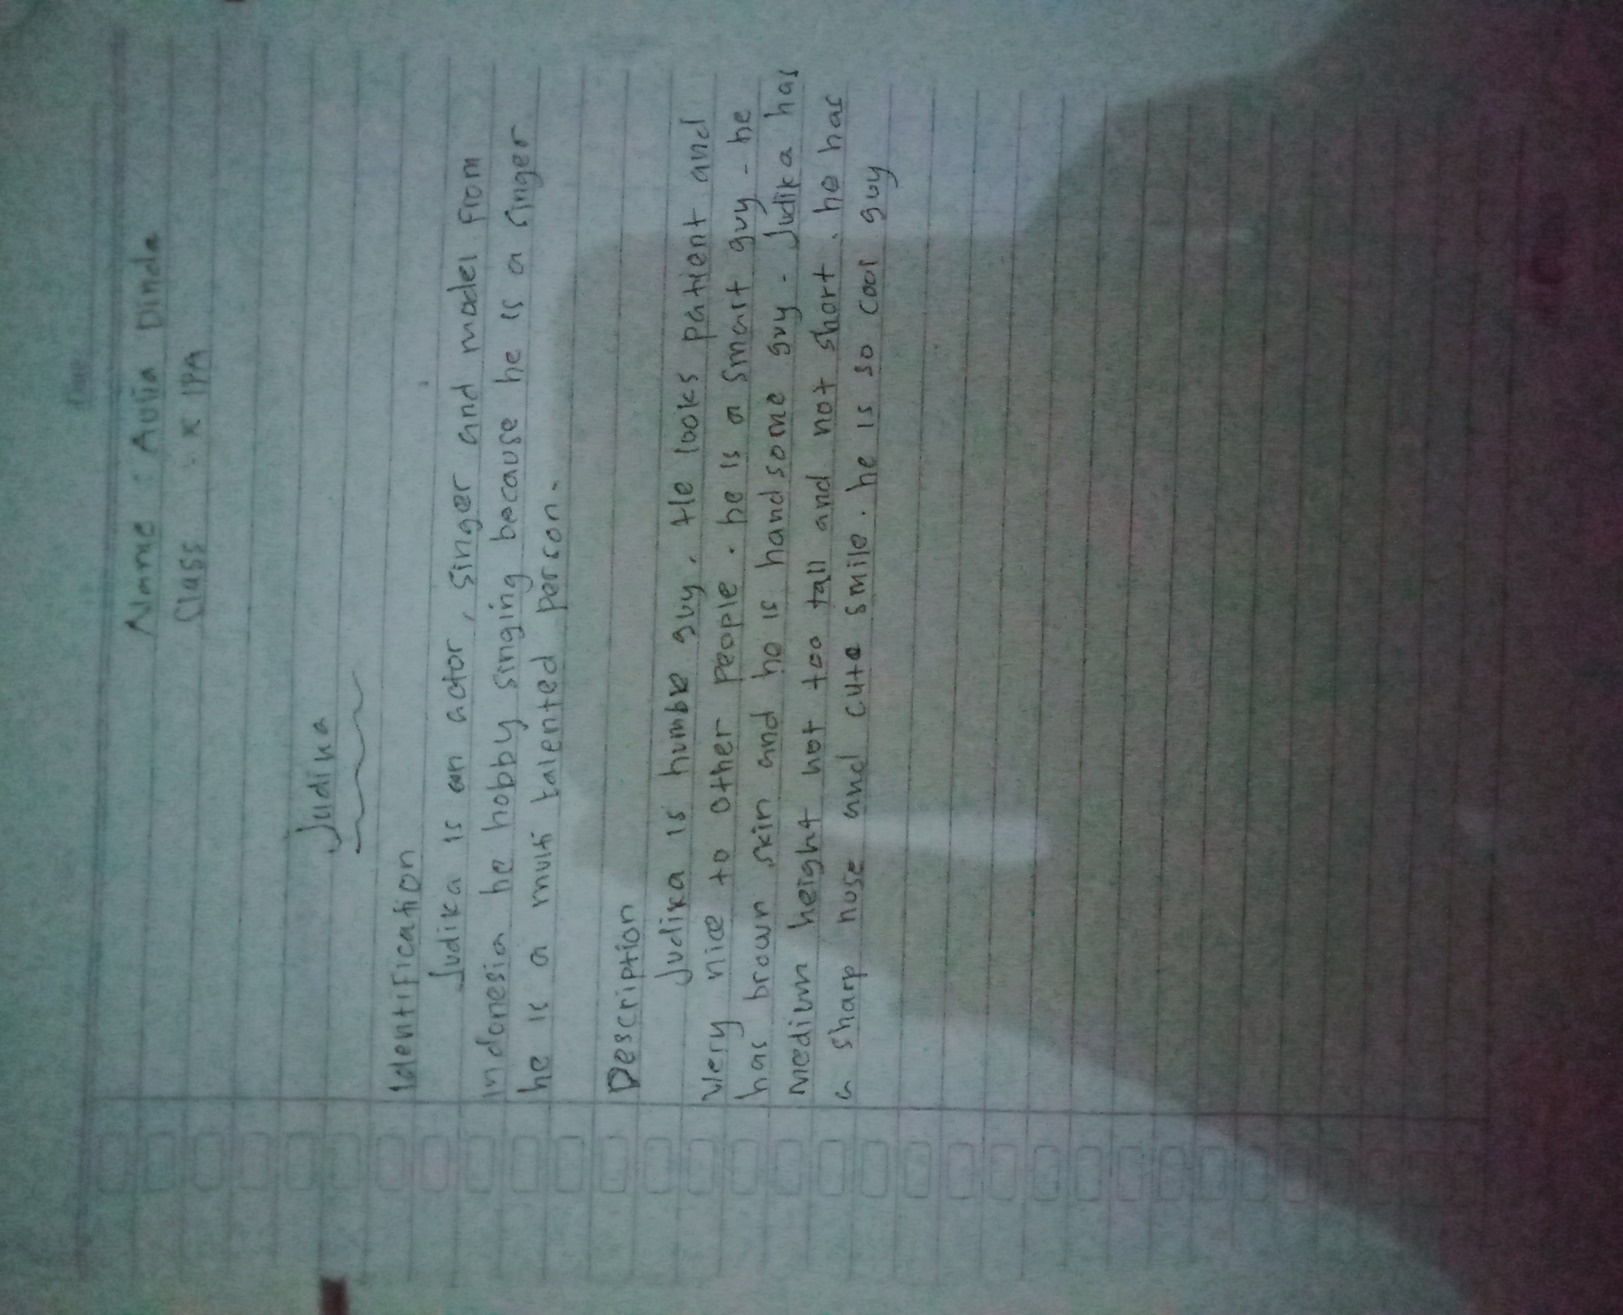 Name : Aulia Dinda
Class : X IPA
Judika
Identification
Judika is an actor, singer and model from
Indonesia he hobby singing because he is a singer
he is a multi talented person.
Description
Judika is humble guy. He looks patient and
very nice to other people. he is a smart guy. he
has brown skin and he is handsome guy. Judika has
medium height not too tall and not short. he has
a sharp nose and cute smile. he is so cool guy